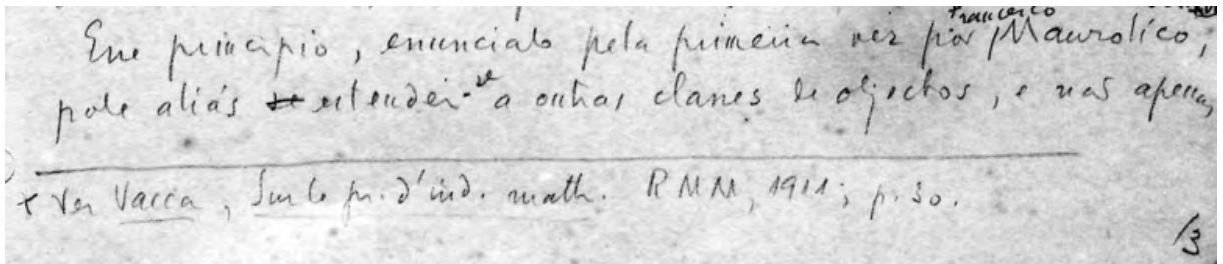 Esse principio, enunciado pela primeira vez por Francesco Maurolico,
pode aliás estender-se a outras classes de objectos, e não apenas
x Ver Vacca, Sur le pr. d'ind. math. RMM, 1911; p. 30.
/3